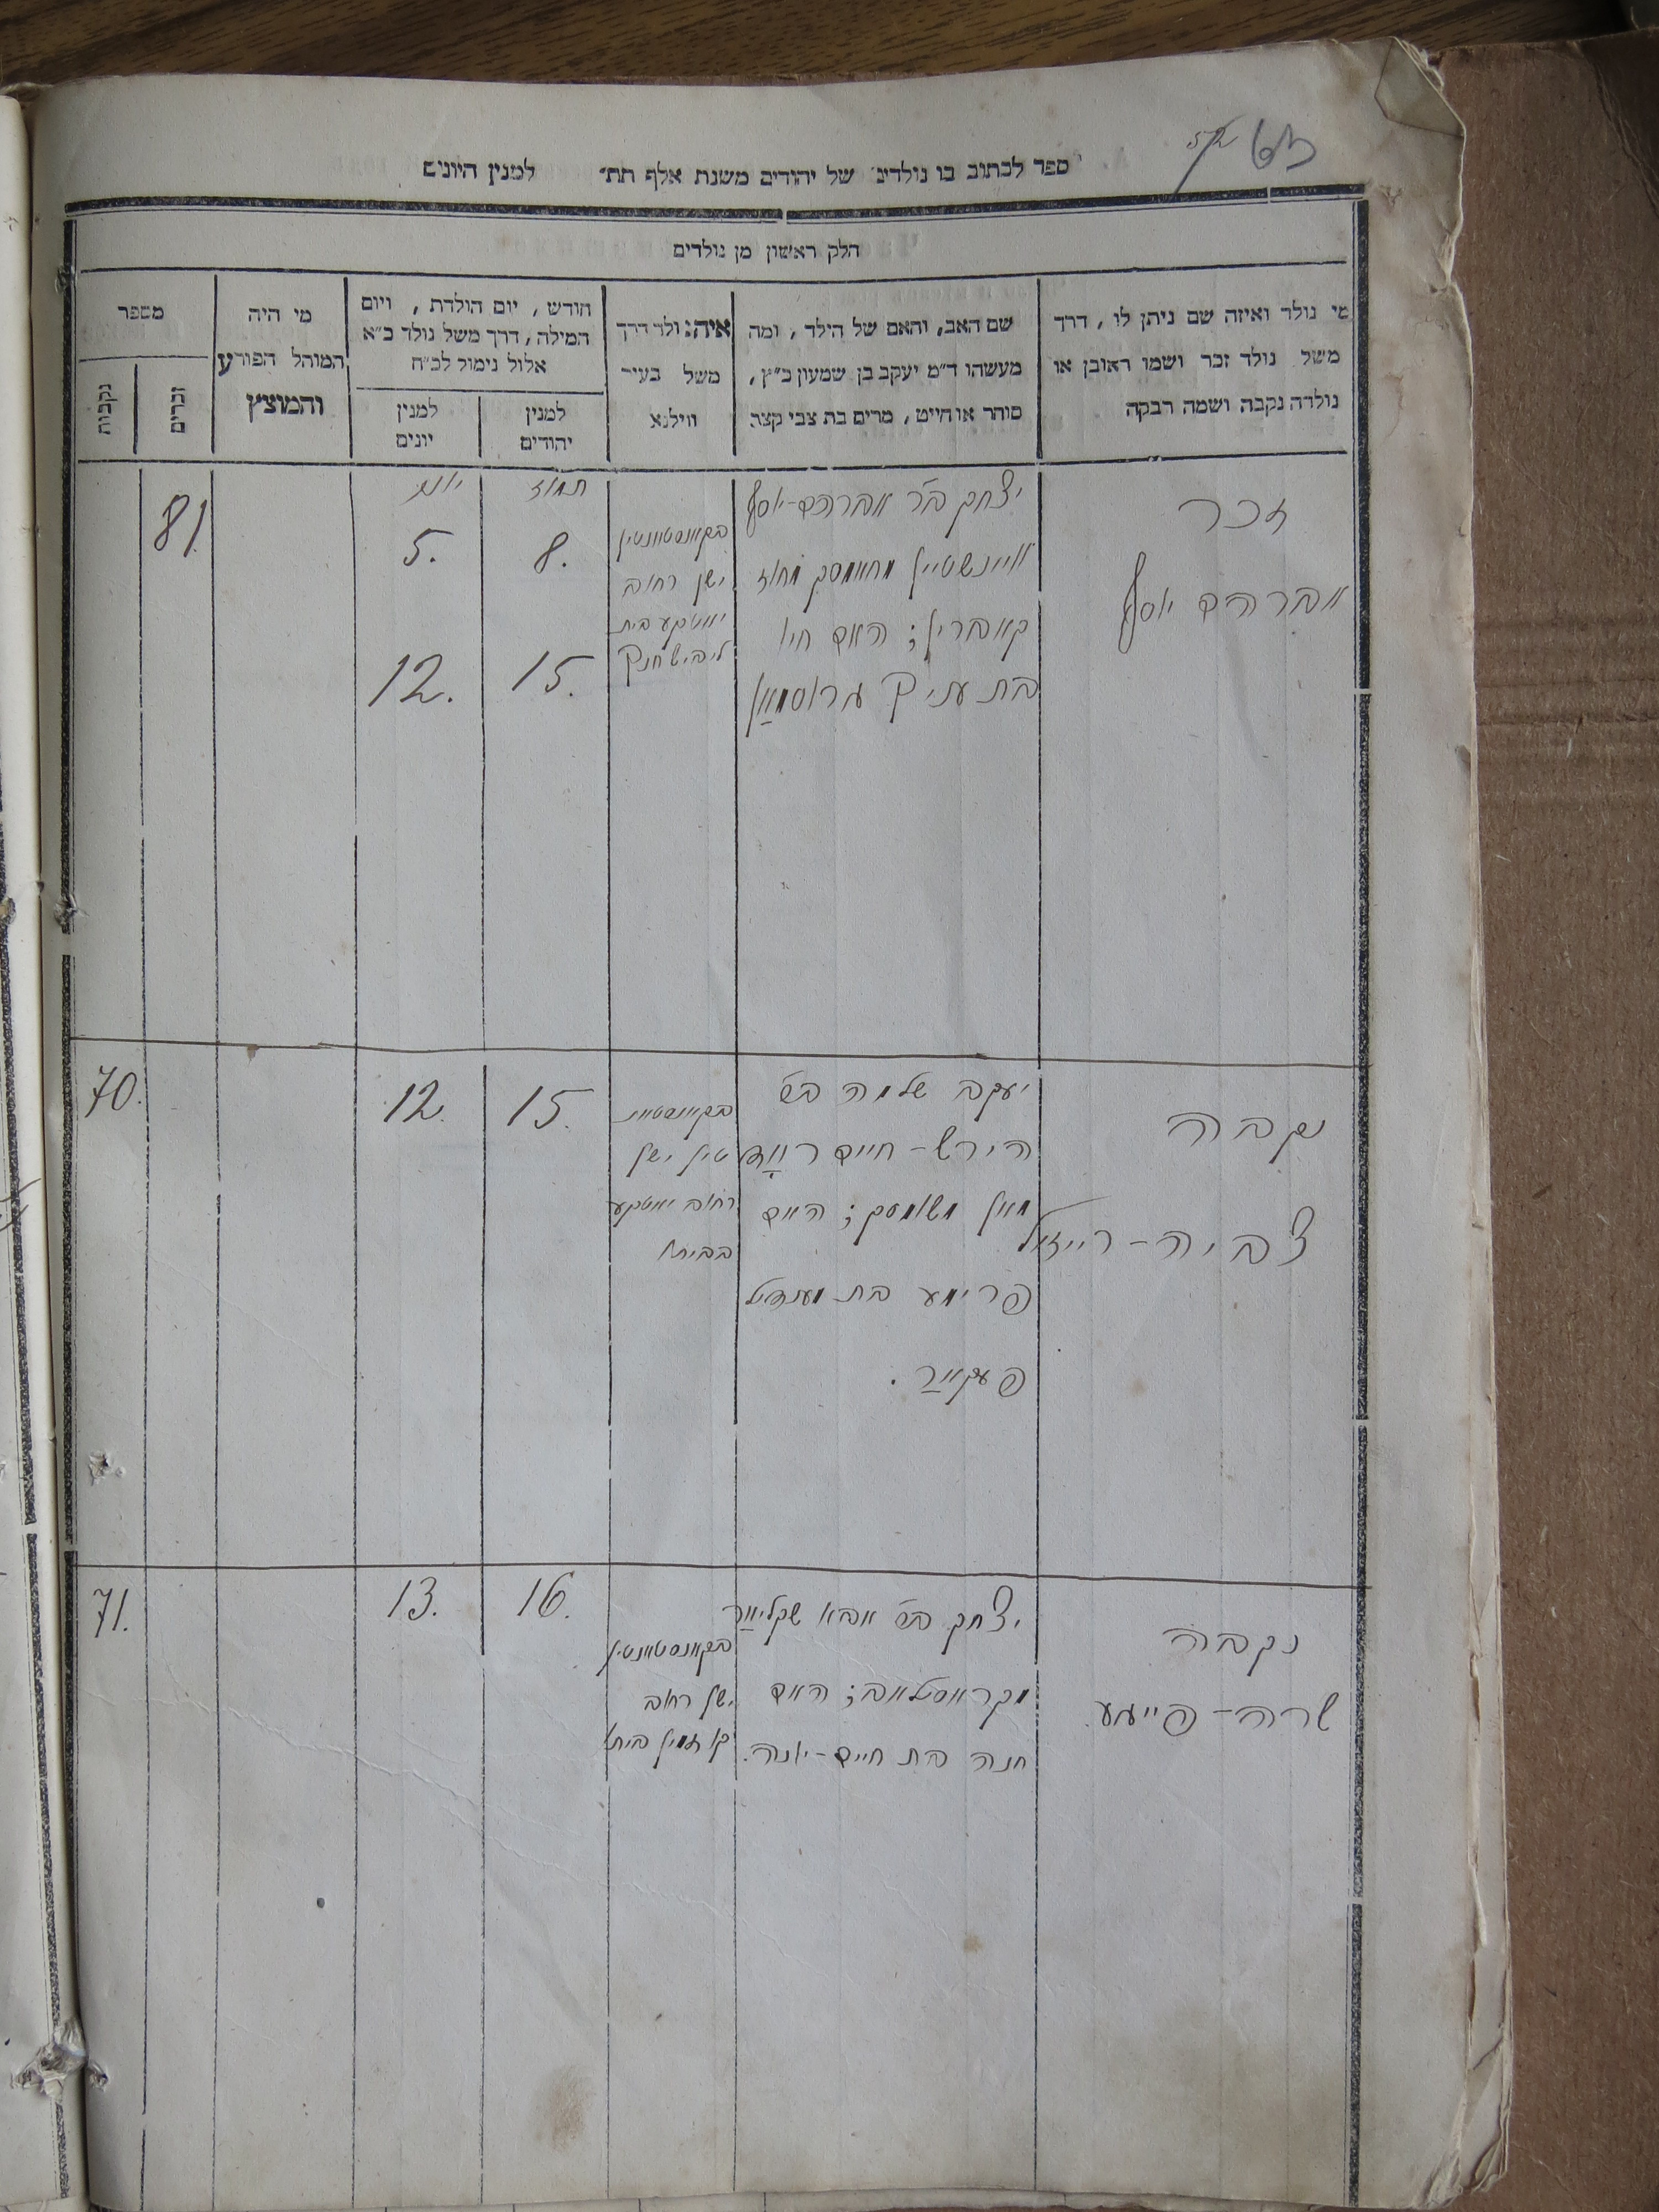 63
ספר לכתוב בו נולדים של יהודים משנת אלף תת״ למנין היונים
חלק ראשון מן נולדים
מי נולד ואיזה שם ניתן לו, דרך
משל נולד זכר ושמו ראובן או
נולדה נקבה ושמה רבקה
שם האב, והאם של הילד, ומה
מעשהו ד״מ יעקב בן שמעון כ״ץ,
סוחר או חייט, מרים בת צבי קצב
איה נולד דרך
משל בעיר
ווילנא
חודש, יום הולדת, ויום
המילה, דרך משל נולד כ״א
אלול נימול לכ״ח
למנין
יהודים
למנין
יונים
מי היה
המוהל הפורע
והמוצץ
מספר
זכרים
נקבות
זכר
אברהם יוסף
יצחק ב״ר אברהם-יוסף
וויינשטיין
קאברין; האם חיה
בת
בקאנסטאנטין
ישן רחוב
בית
תמוז
8.
15.
יוני
5.
12.
81.
נקבה
צביה-רייזל
יעקב שלמה ב״ר
הירש-חיים
האם
פרימע בת מענדיל
פעקאר.
בקאנסטאנ
טין ישן
רחוב
בביתו
15.
12.
70.
נקבה
שרה-פייגע
יצחק ב״ר אבא שקליאר
האם
חנה בת חיים-יונה.
בקאנסטאנטין
ישן רחוב
16.
13.
71.